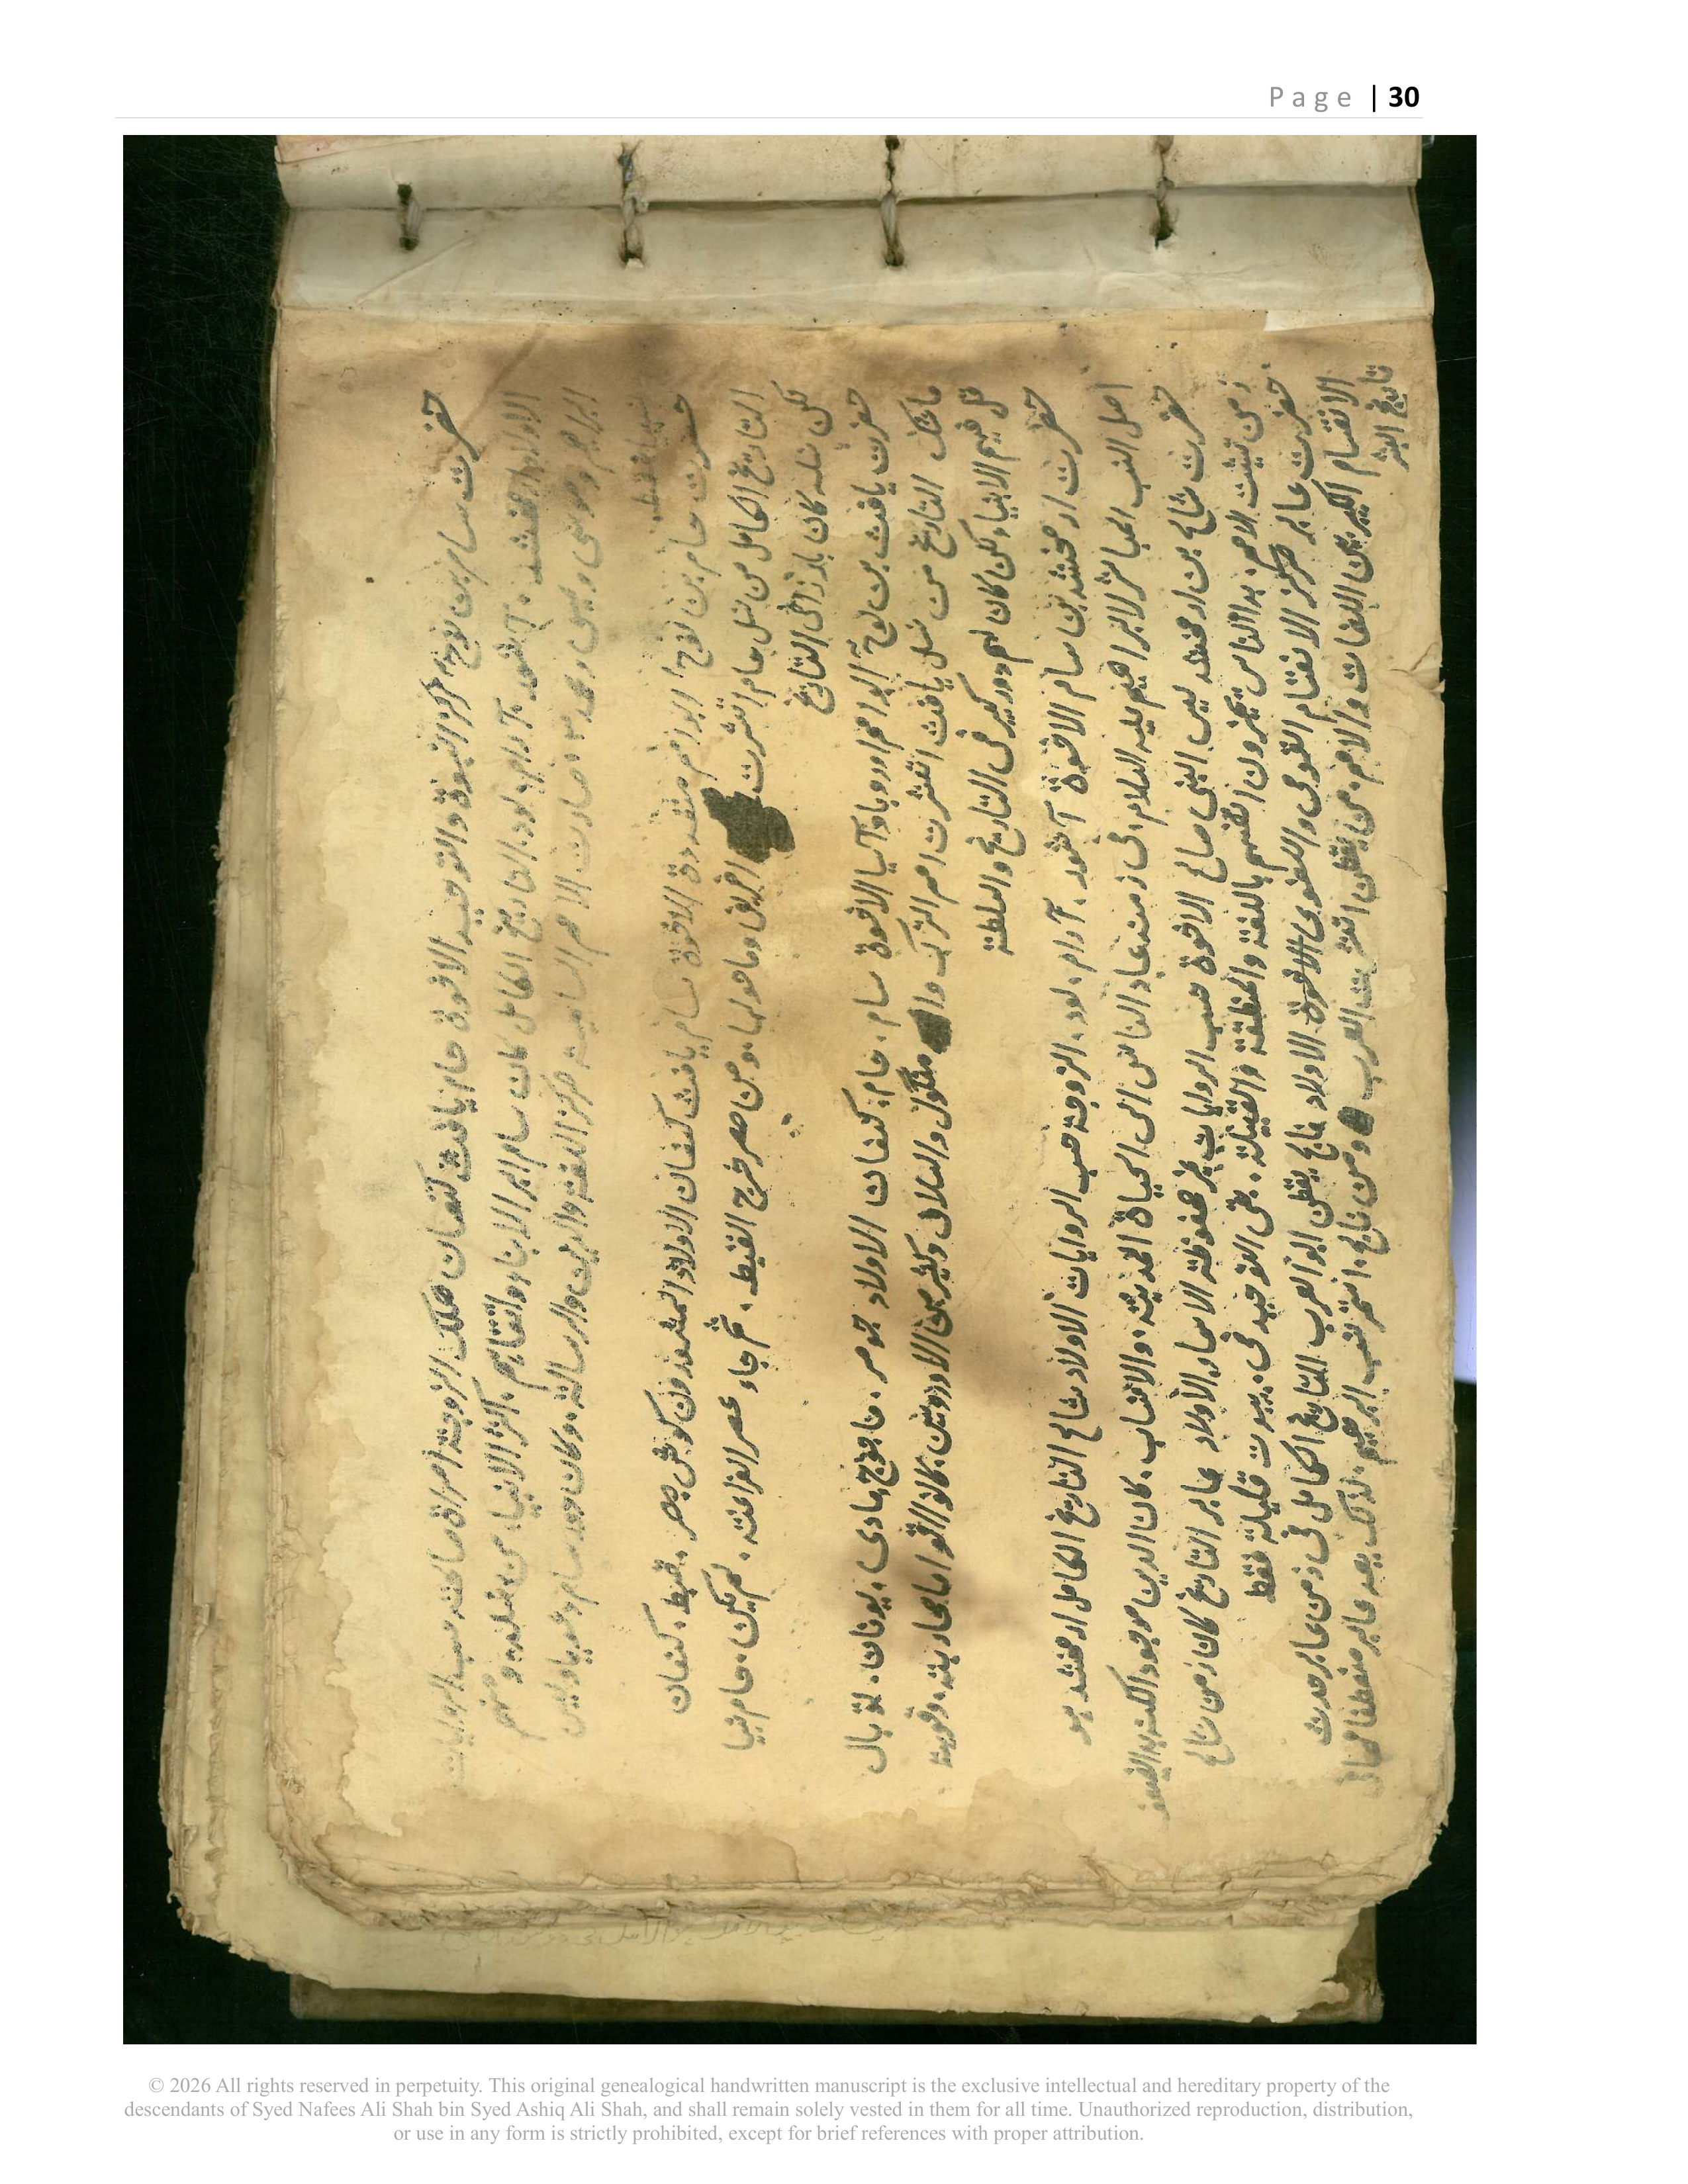 Page | 30
حضرت سام بن نوح مركز النبوة والتوحيد الاخوة حام يافث كنعان هلك الزوجة امراة صالحة حسب الروايات
الاولاد ارفخشد. آشور. آرام. لود. التاريخ الكامل كان سام ابر الابناء واتقاهم. اكثر الانبياء من نسله ومنهم
ابراهيم وموسى وعيسى ومحمد صارت الامم السامية مركز اللغة والدين والرسالة. وكان دور سام
فقط
حضرت حام بن نوح ابو امم متعددة الاخوة سام يافث كنعان الاولاد المشهورون كوش مصر. قبط. كنعان
التاريخ الكامل من نسل حام انتشرت افريقا وما حولها. ومن مصر خرج القبط. ثم جاء عصر الفراعنة. لم يكن. حام نبيا
لكن نسله كان بارزا في التاريخ
حضرت يافث بن نوح ابو امم اوروبا وآسيا الاخوة سام. حام. كنعان الاولاد جومر. ماجوج. مادى. يونان. توبال
ماشك التاريخ من نسل يافث انتشرت امم الترك وال منگول والسلاف وكثير من الاوروبين. كانوا اقواما محاربة. وقوية
قل فيهم الانبياء لكن كان لهم دور كبير فى التاريخ والسلطنة
حضرت ارفخشد بن سام الاخوة آشور. آرام. لود. الزوجة حسب الروايات الاولاد شالح التاريخ الكامل ارفخشد هو
اصل النسب المباشر لابراهيم عليه السلام. فى زمنه عاد الناس الى الحياة المدينة. والانساب. كان الدين موجود الكنه بدا يضعف
حضرت شالح بن ارفخشد ليس النبى صالح الاخوة حسب الروايات غير محفوظة الاسماء الاولاد عابر التاريخ كان زمن شالح
زمن تثبيت الامم. بدا الناس يتميزون انفسهم باللغة والمنطقة والقبيلة. بقى التوحيد فى. بيوت قليلة فقط
حضرت عابر مركز الانقسام القومى واللغوى الاخوة الاولاد فالج يقطن ابو العرب التاريخ الكامل فى زمن عابر حدث
الانقسام الكبير بين اللغات والامم. من يقطن انتشرت العرب ومن فالج. استمر نسب ابراهيم. لذلك يعد عابر منعطفا فى
تاريخ البشر
© 2026 All rights reserved in perpetuity. This original genealogical handwritten manuscript is the exclusive intellectual and hereditary property of the
descendants of Syed Nafees Ali Shah bin Syed Ashiq Ali Shah, and shall remain solely vested in them for all time. Unauthorized reproduction, distribution,
or use in any form is strictly prohibited, except for brief references with proper attribution.